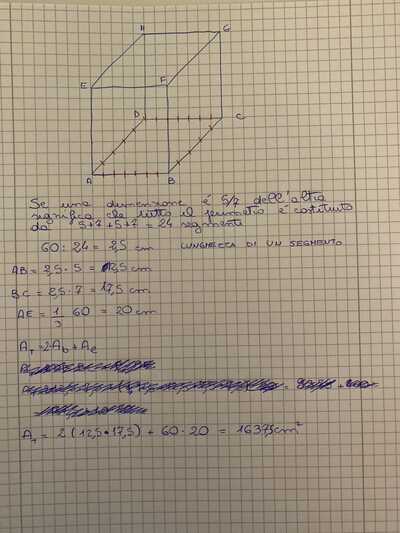 H
G
E
F
D
C
A
B
Se una dimensione é 5/7 dell'altra
significa che tutto il perimetro é costituito
da 5+7+5+7 = 24 segmenti
60 : 24 = 2,5 cm LUNGHEZZA DI UN SEGMENTO
AB = 2,5 · 5 = 12,5 cm
BC = 2,5 · 7 = 17,5 cm
AE = 1/3 60 = 20 cm
A_T = 2A_b + A_e
A_T = 2 (12,5 · 17,5) + 60 · 20 = 1637,5 cm²